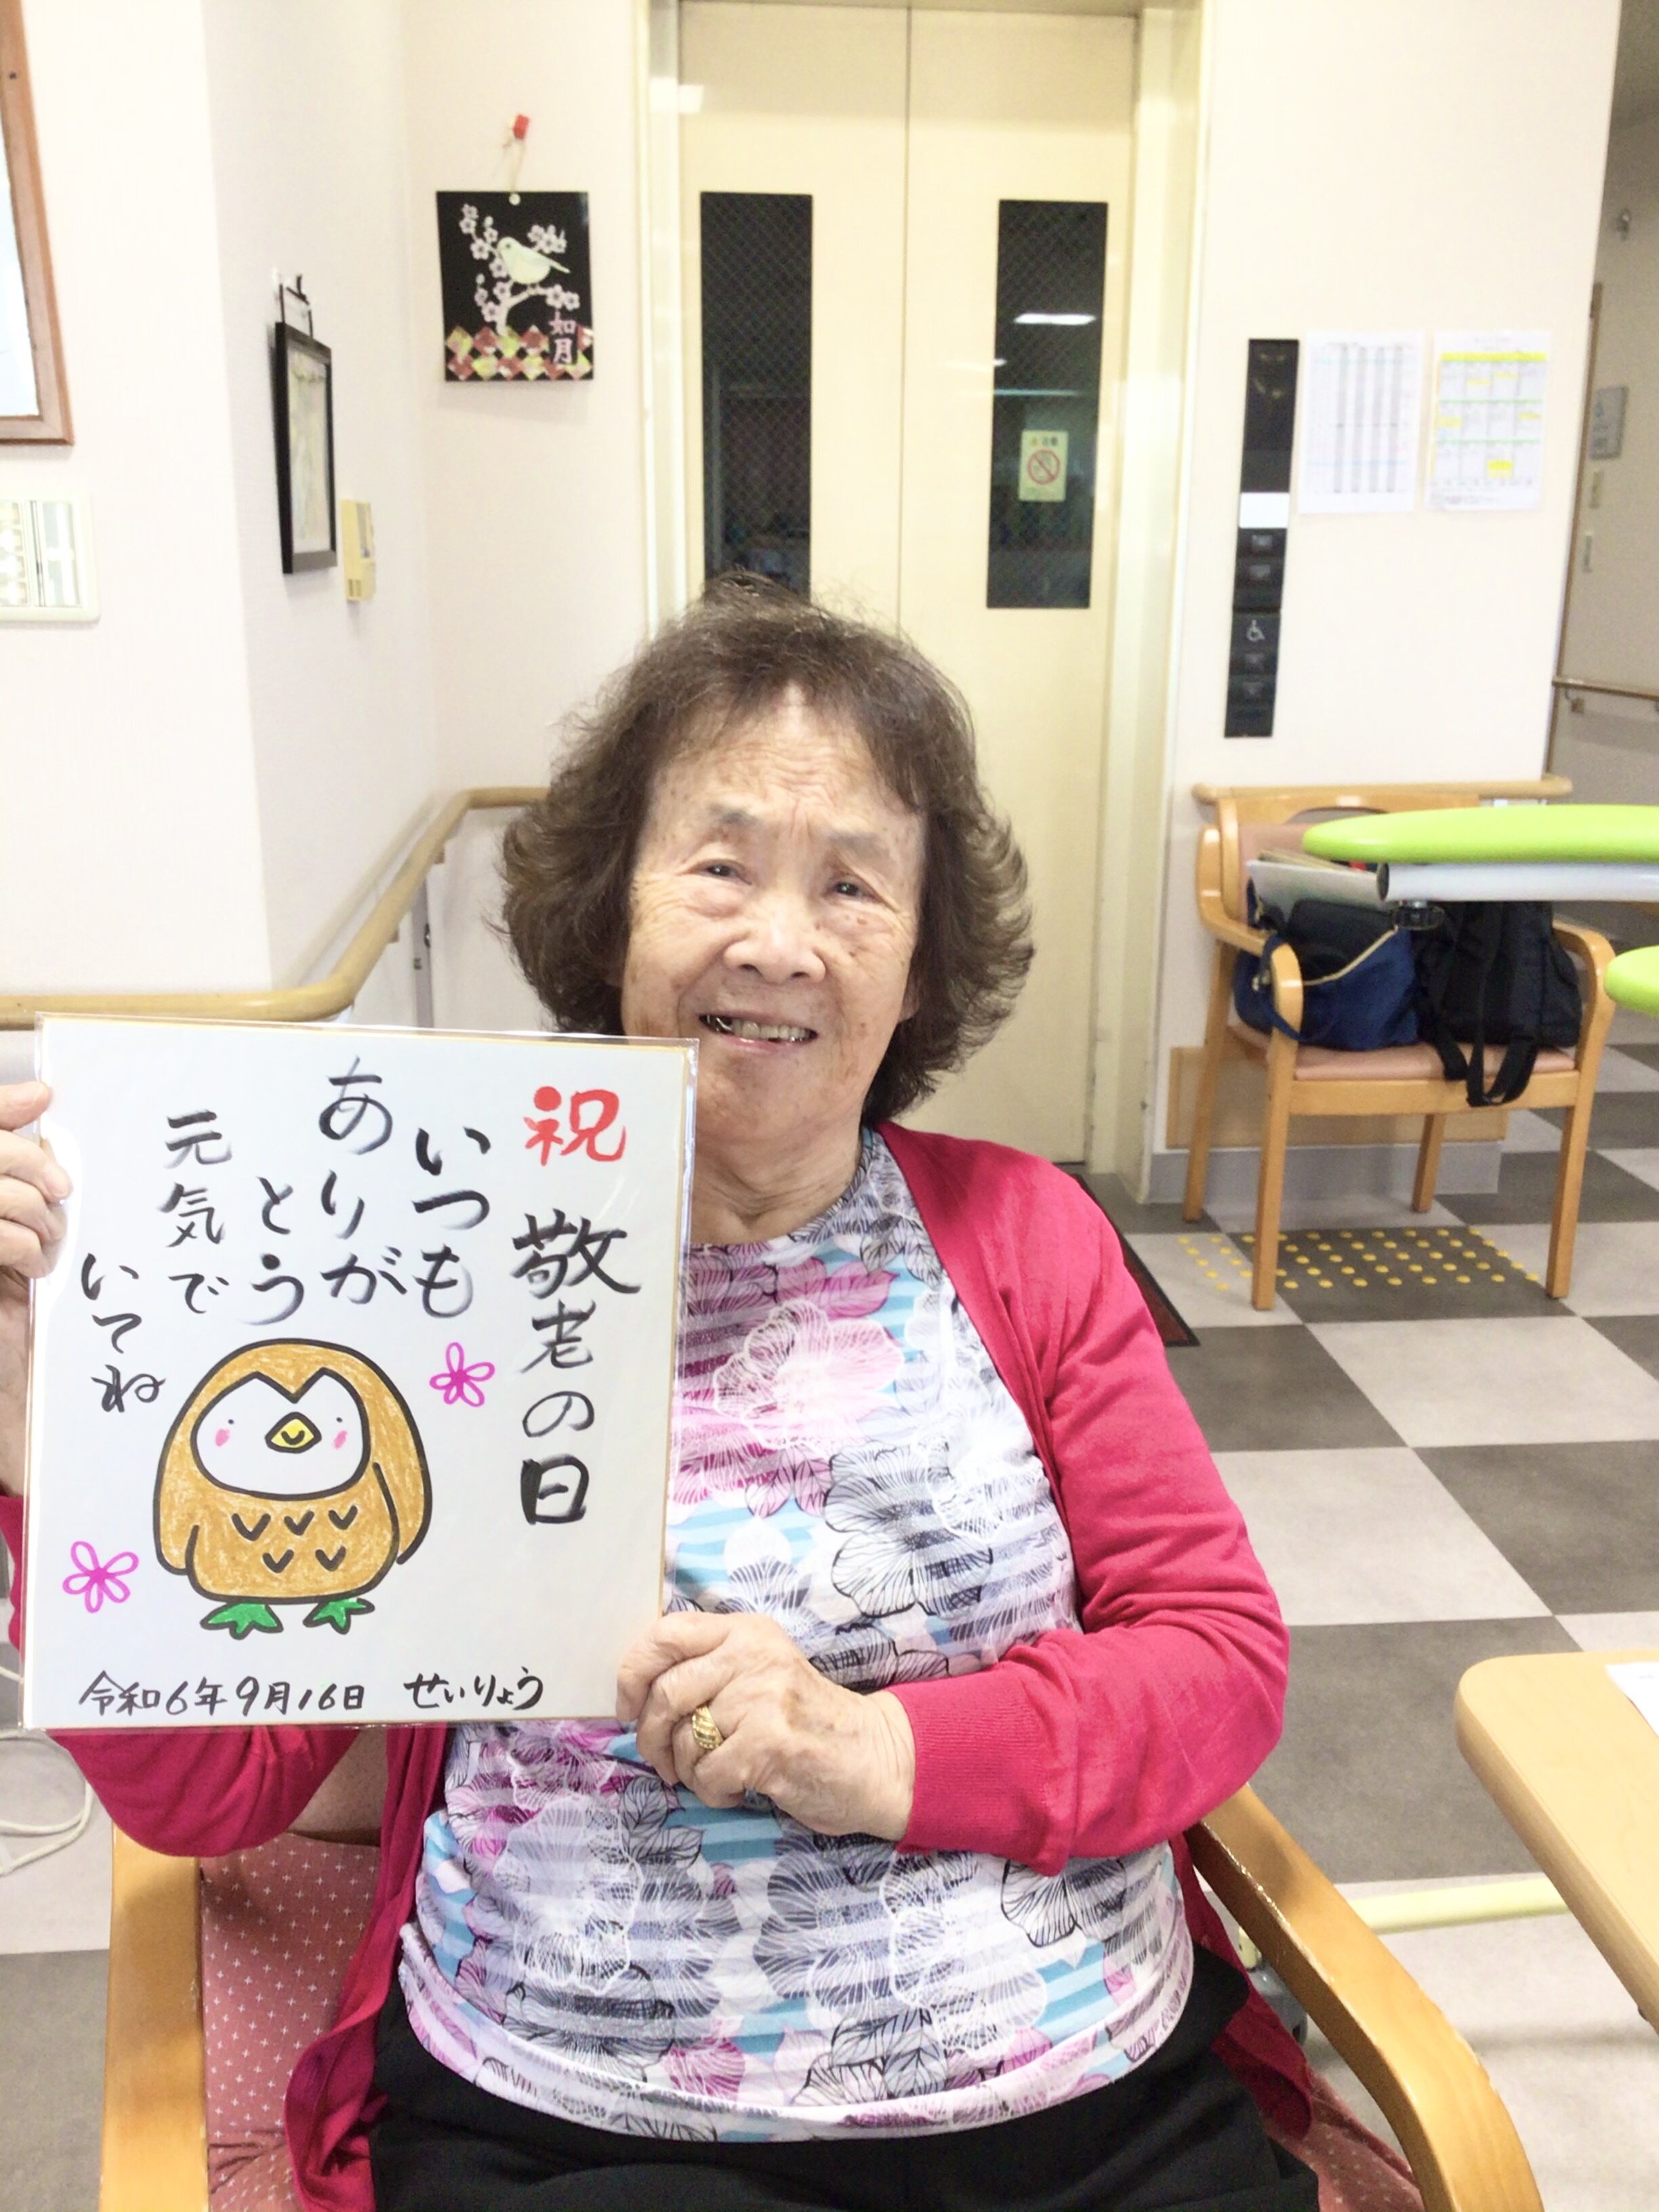 祝 敬老の日
いつも
ありが
とう
元気で
いてね
令和6年9月16日 せいりょう
如月